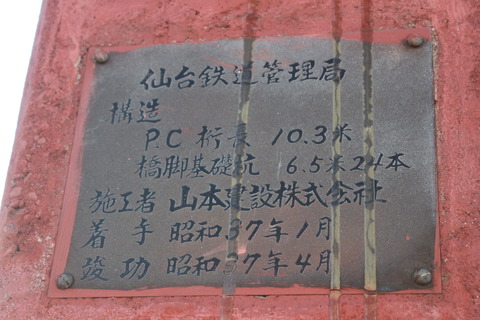 仙台鉄道管理局
構造
P.C 桁長 10.3米
橋脚基礎杭 6.5米24本
施工者 山本建設株式会社
着手 昭和37年1月
竣功 昭和37年4月